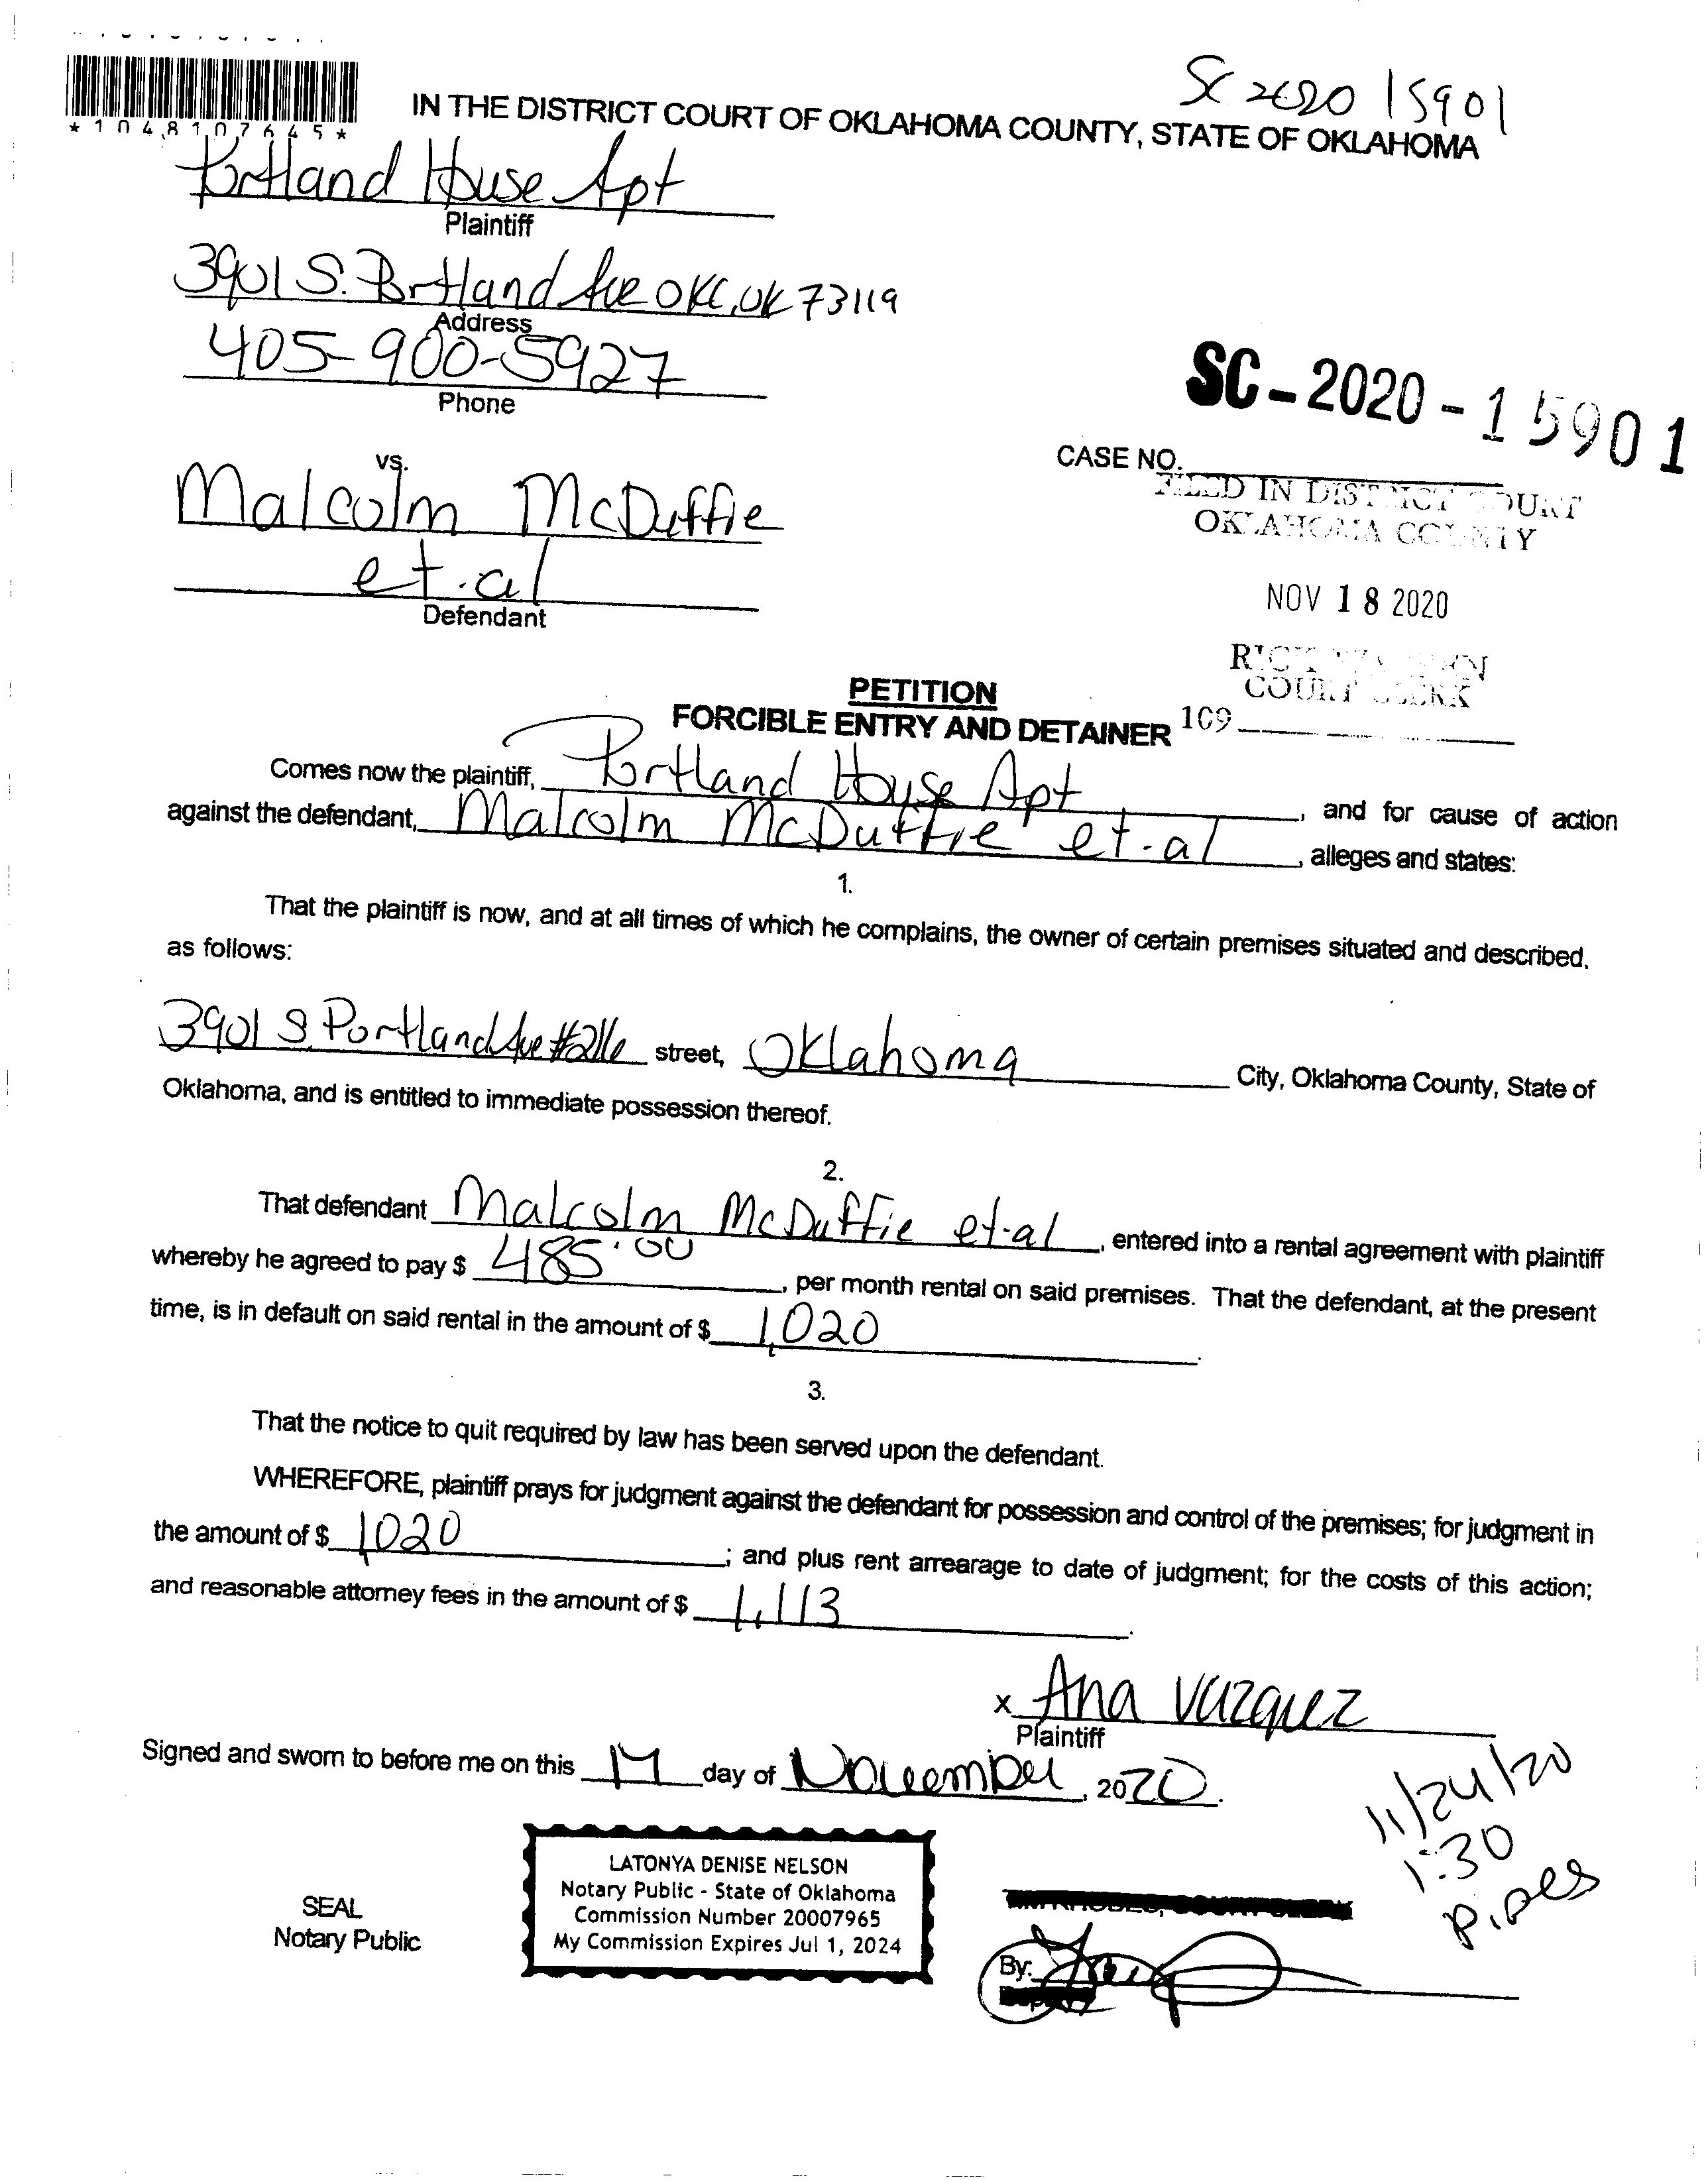 SC 2020 15901
*1048107645*
IN THE DISTRICT COURT OF OKLAHOMA COUNTY, STATE OF OKLAHOMA
Portland House Apt
Plaintiff
3901 S. Portland Ave OKC, OK 73119
Address
405-900-5927
Phone
SC-2020-15901
vs.
CASE NO.
Malcolm McDuffie
et.al
Defendant
FILED IN DISTRICT COURT
OKLAHOMA COUNTY
NOV 18 2020
COURT CLERK
109
PETITION
FORCIBLE ENTRY AND DETAINER
Comes now the plaintiff, Portland House Apt, and for cause of action
against the defendant, Malcolm McDuffie et.al, alleges and states:
1.
That the plaintiff is now, and at all times of which he complains, the owner of certain premises situated and described,
as follows:
3901 S. Portland Ave #216 street, Oklahoma City, Oklahoma County, State of
Oklahoma, and is entitled to immediate possession thereof.
2.
That defendant Malcolm McDuffie et.al, entered into a rental agreement with plaintiff
whereby he agreed to pay $ 485.00, per month rental on said premises. That the defendant, at the present
time, is in default on said rental in the amount of $ 1,020.
3.
That the notice to quit required by law has been served upon the defendant.
WHEREFORE, plaintiff prays for judgment against the defendant for possession and control of the premises; for judgment in
the amount of $ 1,020; and plus rent arrearage to date of judgment; for the costs of this action;
and reasonable attorney fees in the amount of $ 1,113.
x Ana Vazquez
Plaintiff
Signed and sworn to before me on this 17 day of November, 2020.
11/24/20
1:30
SEAL
Notary Public
LATONYA DENISE NELSON
Notary Public - State of Oklahoma
Commission Number 20007965
My Commission Expires Jul 1, 2024
By: